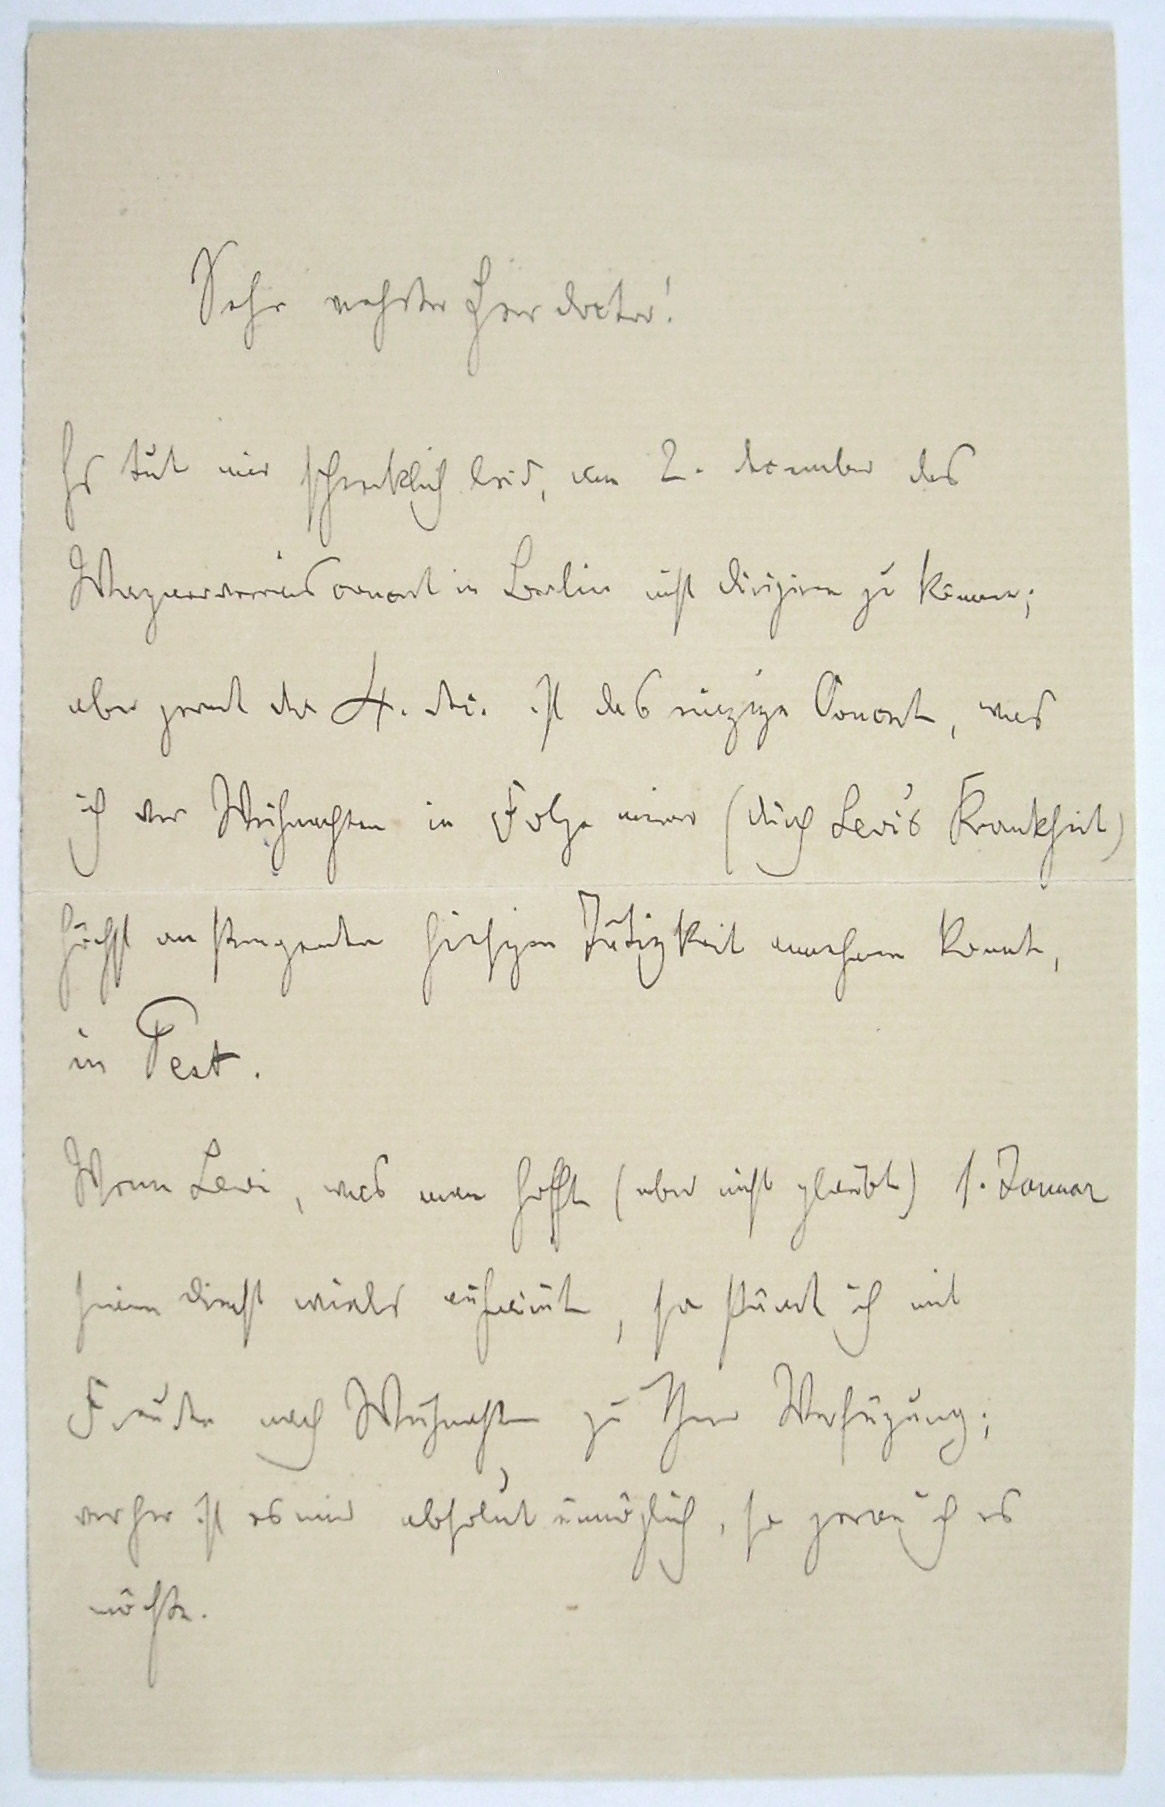 Sehr verehrter Herr Doctor!
Es tut mir schrecklich leid, am 2. December das
Wagnervereinsconcert in Berlin nicht dirigiren zu können;
aber gerade der 4. Dec. ist das einzige Concert, was
ich vor Weihnachten in Folge meiner (durch Levi's Krankheit)
höchst anstrengenden hiesigen Tätigkeit annehmen konnte,
in Pest.
Wenn Levi, was man hofft (aber nicht glaubt) 1. Januar
seinen Dienst wieder aufnimmt, so stände ich mit
Freuden nach Weihnachten zu Ihrer Verfügung;
vorher ist es mir absolut unmöglich, so gerne ich es
möchte.